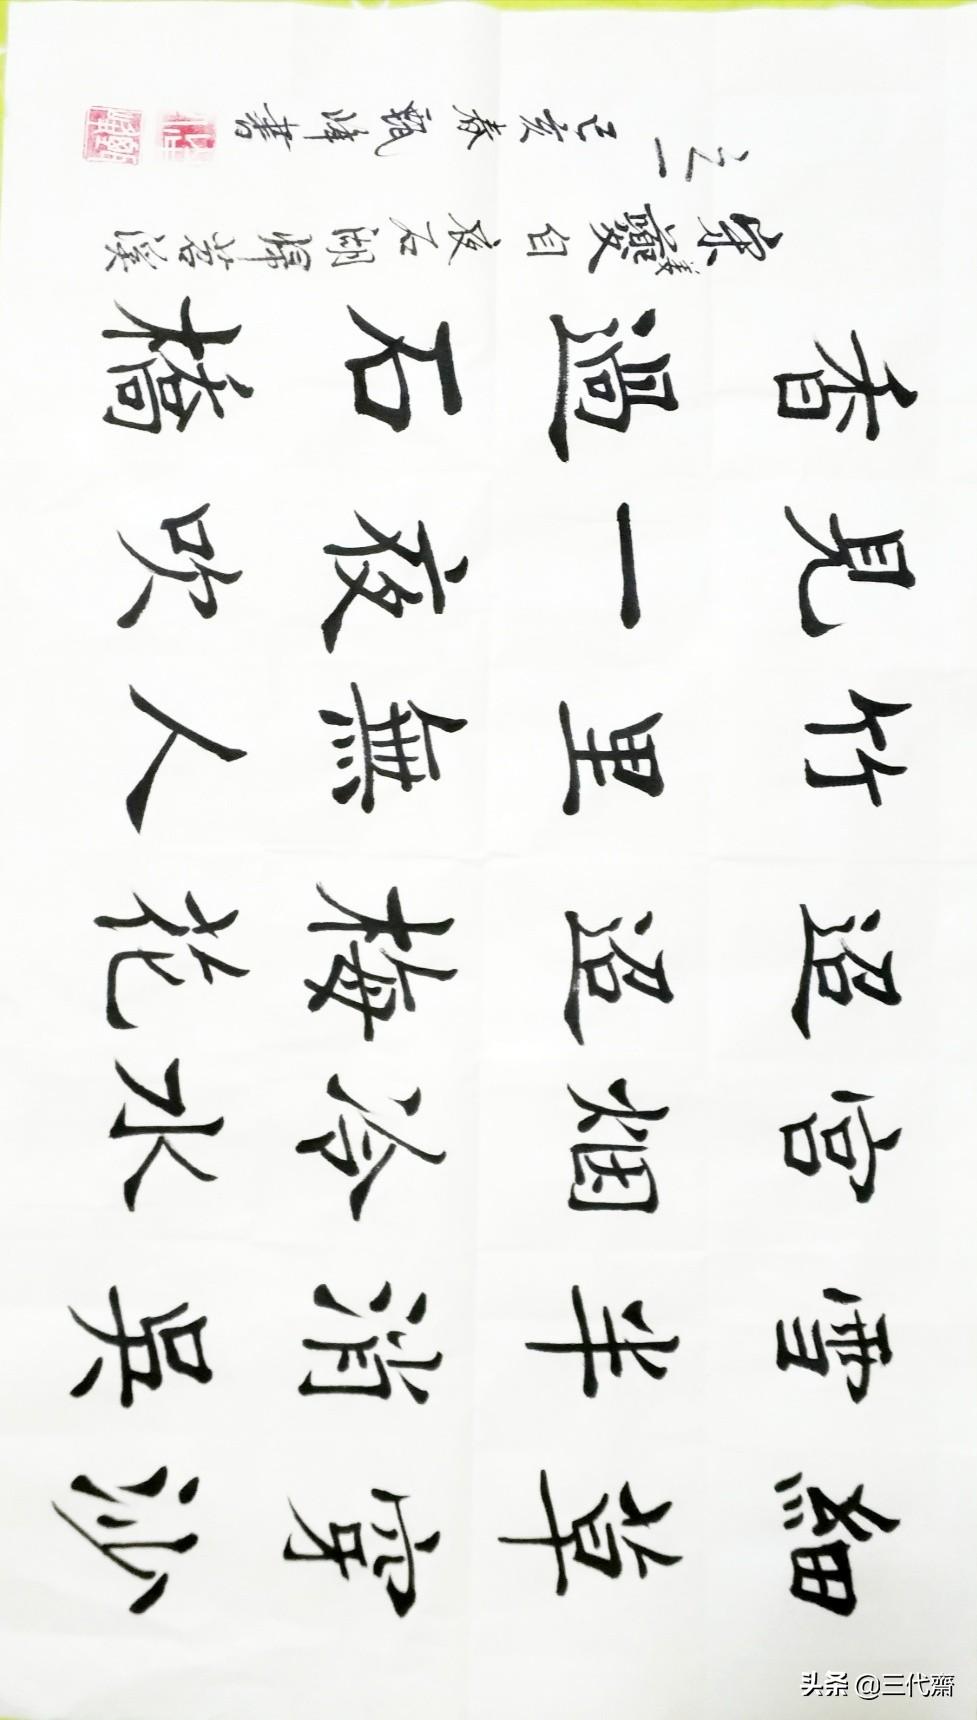 細草穿沙
雪半消吳
宮烟冷水
迢迢梅花
竹里無人
見一夜吹
香過石橋
宋姜夔自夜石湖歸苕溪
之一 己亥春甄峰書
头条 @三代齋